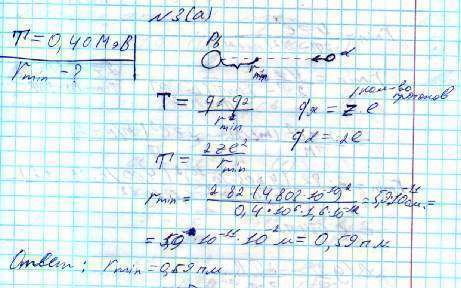 N3(а)
T = 0,40 МэВ
r min - ?
Pb
α
r min
T = q1 q2 / r min
qα = z·e
кол-во протонов
q2 = 2e
T = 2ze² / r min
r min = 2·82(4,802·10⁻¹⁰)² / 0,4·10⁶·1,6·10⁻¹² = 5,9·10⁻¹¹ см =
= 59·10⁻¹¹·10⁻² м = 0,59 пм
Ответ: r min = 0,59 пм